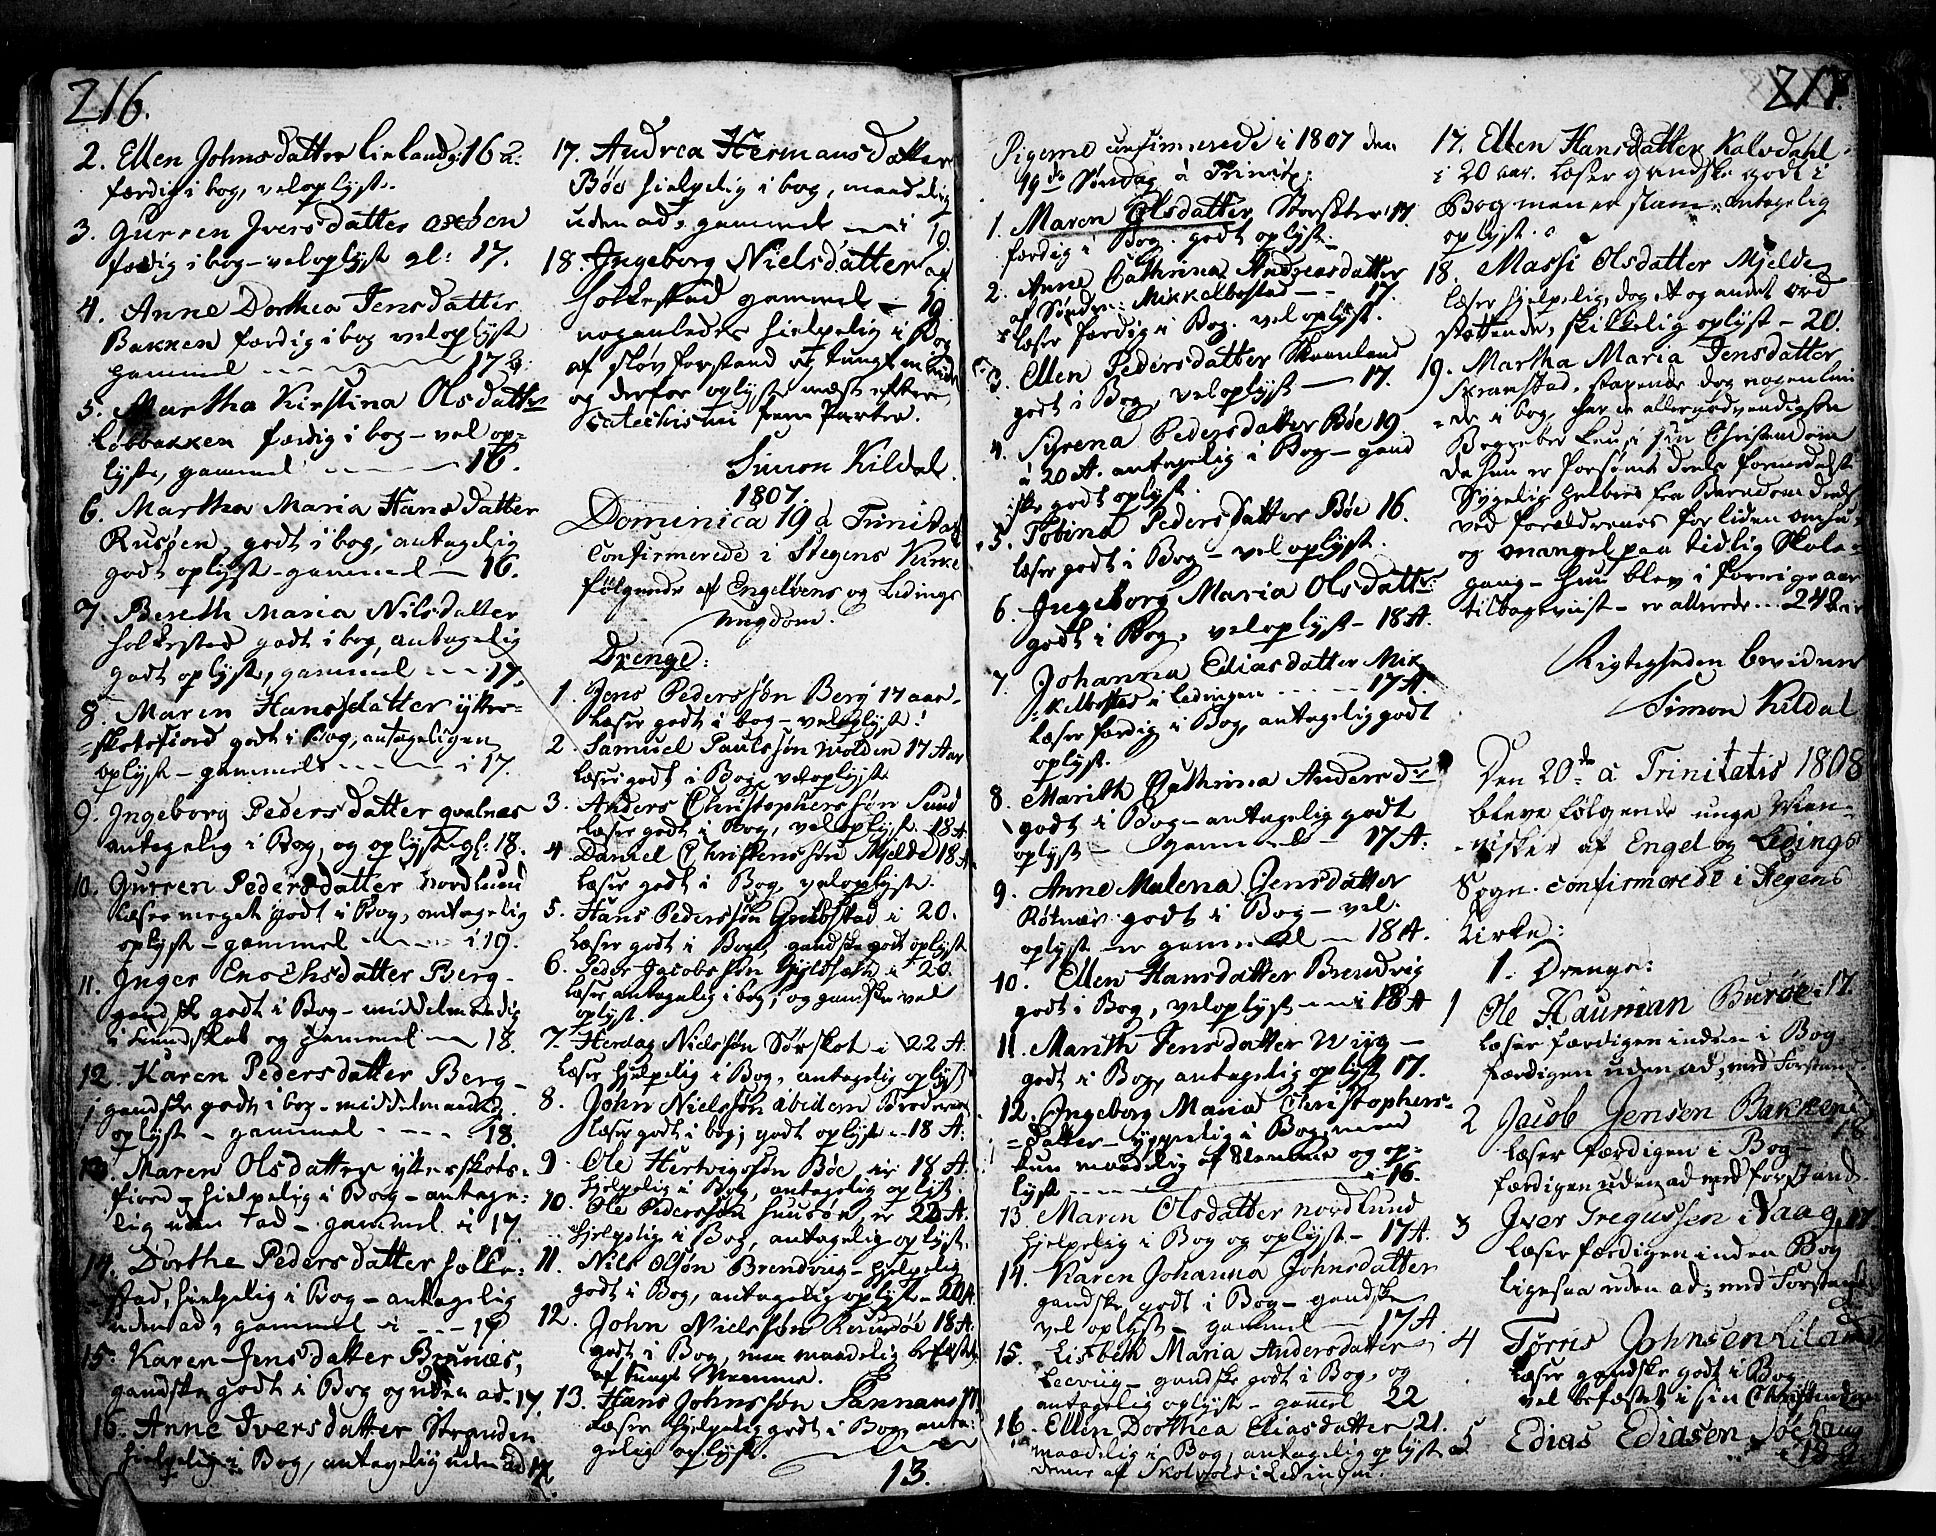 216.
2. Ellen Johnsdatter Lieland g: 16 a:
færdig i bog, veloplyst.
3. Gurren Iversdatter
færdig i bog – veloplyst gl: 17.
4. Anne Dorthea Jensdatter
Bakken færdig i bog veloplyst
gammel 17
5. Martha Kirstina Olsdatter
Løbbakken færdig i bog – vel op=
lyst, gammel 16.
6. Martha Maria Hansdatter
Rusøen, godt i bog, antagelig
godt oplyst – gammel – 16.
7. Bereth Maria Nilsdatter
Holkested godt i bog, antagelig
godt oplyst, gammel 17.
8. Maren Hansdatter ytter=
=skotsfiord godt i Bog, antageligen
oplyst – gammel i 17.
9. Ingeborg Pedersdatter qvalnæs
antagelig i Bog, og oplyst – gl: 18.
10. Gurren Pedersdatter Nordlund
læser meget godt i Bog, antagelig
oplyst – gammel i 19.
11. Inger Enochsdatter Berg –
gandske godt i Bog – middelmaadig
i Kundskab og gammel – 18.
12. Karen Pedersdatter Berg –
gandske godt i bog – middelmaadig
oplyst – gammel 18.
13. Maren Olsdatter ytterskots=
fiord – hielpelig i Bog – antage=
lig uden ad – gammel i 17.
14. Dorthe Pedersdatter Holke=
stad, hielpelig i Bog – antagelig
uden ad, gammel i 19
15. Karen Jensdatter Brunæs,
gandske godt i Bog og uden ad. 17.
16. Anne Iversdatter Stranden
hielpelig i Bog, antagelig uden ad 17.
17. Andrea Hermansdatter
Bøe hielpelig i bog, maadelig
uden ad, gammel i 19.
18. Ingeborg Nielsdatter af
Holkestad gammel – 19.
nogenledes hielpelig i Bog
af sløv forstand og tungt
og derfor oplyst mest efter
Catechismi fem Parter.
Simon Kildal.
1807.
Dominica 19 a Trinitatis
Confirmerede i Stegens Kirke
følgende af Engeløens og Ledings
Ungdom.
Drenge:
1. Jens Pederssøn Berg 17 aar –
læser godt i bog – veloplyst!
2. Samuel Paulssøn Wolden 17 Aar
læser godt i Bog, veloplyst
3. Anders Christopherssøn Sund
læser godt i Bog, veloplyst. 18 A.
4 Daniel Christenssøn Mjelde 18 A.
læser godt i Bog, veloplyst.
5. Hans Pederssøn Gribstad i 20.
læser godt i Bog, gandske godt oplyst
6. Peder Jacobssøn i 20.
læser antagelig i bog, og gandske vel
oplyst.
7. Herdag Nielssøn Sørskot i 22 A.
læser hjelpelig i Bog, antagelig oplyst
8. John Nielssøn ibidem Broderen
læser godt i bog; godt oplyst – 18 A:
9. Ole Hertvigssøn Bøe er 18 A.
hjelpelig i Bog, antagelig oplyst
10. Ole Pederssøn er 22 A.
hjelpelig i Bog, antagelig oplyst.
11. Nils Olsøn Brendvig – hjelpelig
godt i Bog, antagelig oplyst – 20 A.
12. John Nielssøn 18 A.
godt i Bog, men maadelig befæstet
af tungt Nemme.
13. Hans Johnssøn 17.
læser hjelpelig godt i Bog, anta=
gelig oplyst.
13.
217.
Pigerne confirmerede i 1807 den
19de Søndag a Trinit:
1. Maren Olsdatter 17.
færdig i Bog. godt oplyst.
2. Anne Cathrina Andreasdatter
af Søndre Mikkelbostad 17.
læser færdig i Bog. vel oplyst.
3. Ellen Pedersdatter Skaanland
godt i Bog, veloplyst – 17.
4. Syrena Pedersdatter Bøe 19.
à 20 A. antagelig i Bog – gand
ske godt oplyst.
5. Tobina Pedersdatter Bøe 16.
læser godt i Bog – veloplyst.
6. Ingeborg Maria Olsdatter
godt i Bog, veloplyst – 18 A.
7. Johanna Eliasdatter Mik
=kelbosted i Ledingen 17 A.
læser færdig i Bog, antagelig godt
oplyst.
8. Marith Cathrina Andersdr
godt i Bog – antagelig godt
oplyst – gammel – 17 A:
9. Anne Malena Jensdatter
Røtnæs godt i Bog – vel
oplyst – er gammel – 18 A.
10. Ellen Hansdatter Brendvig
godt i Bog, veloplyst i 18 A
11. Marith Jensdatter Wiig –
godt i Bog, antagelig oplyst 17.
12. Ingeborg Maria Christophers=
=datter – hyppelig i Bog, men
kun maadelig af Nemme og op=
lyst 16.
13. Maren Olsdatter Nordlund
hjelpelig i Bog og oplyst – 17 A.
14. Karen Johanna Johnsdatter
gandske godt i Bog – gandske
vel oplyst – gammel – 17 A.
15. Lisbeth Maria Andersdatter
Leervig – gandske godt i Bog, og
antagelig oplyst – gamel 22
16. Ellen Dorthea Eliasdatter 21.
maadelig i Bog, antagelig oplyst
denne af Skolvold i Ledingen.
17. Ellen Hansdatter Kalvdahl
i 20 aar. læser gandske godt i
Bog men er stam: antagelig
oplyst.
18. Massi Olsdatter Mjelde
læser hjelpelig, dog et og andet ord
støttende, skikkelig oplyst – 20.
19. Martha Maria Jensdatter
Skranstad, stavende dog nogenlun
=de i bog, har de allernødvendigste
Begreber kun i sin Christendom
da hun er forsømt deels formedelst
Sygelig helbred fra Barndom deels
ved forældrenes for liden omhu=
og mangel paa tidlig Skole=
gang – hun blev i forrige aar
tilbageviist – er allerede 24 aar
Rigtigheden bevidner
Simon Kildal
Den 20de a Trinitatis 1808
bleve følgende unge Men=
nisker af Engel og Ledings
Sogn confirmerede i Stegens
Kirke:
1. Drenge:
1 Ole Hauman Burøe i 17.
læser færdigen inden i Bog
færdigen uden ad, med Forstand.
2 Jacob Jensen Bakken i
18.
læser færdigen i Bog –
færdigen uden ad med forstand.
3 Iver Gregussen i Vaag, 17.
læser færdigen inden Bog
ligesaa uden ad, med Forstand
4 Tørris Johnsen Lieland
læser gandske godt i Bog
vel befæstet i sin Christendom
5 Edias Ediasen
i 18